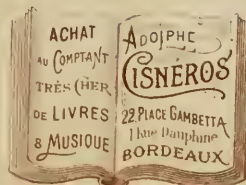 ACHAT
AU COMPTANT
TRÈS CHER
DE LIVRES
& MUSIQUE
ADOLPHE
CISNÉROS
22, PLACE GAMBETTA
1 Rue Dauphine
BORDEAUX